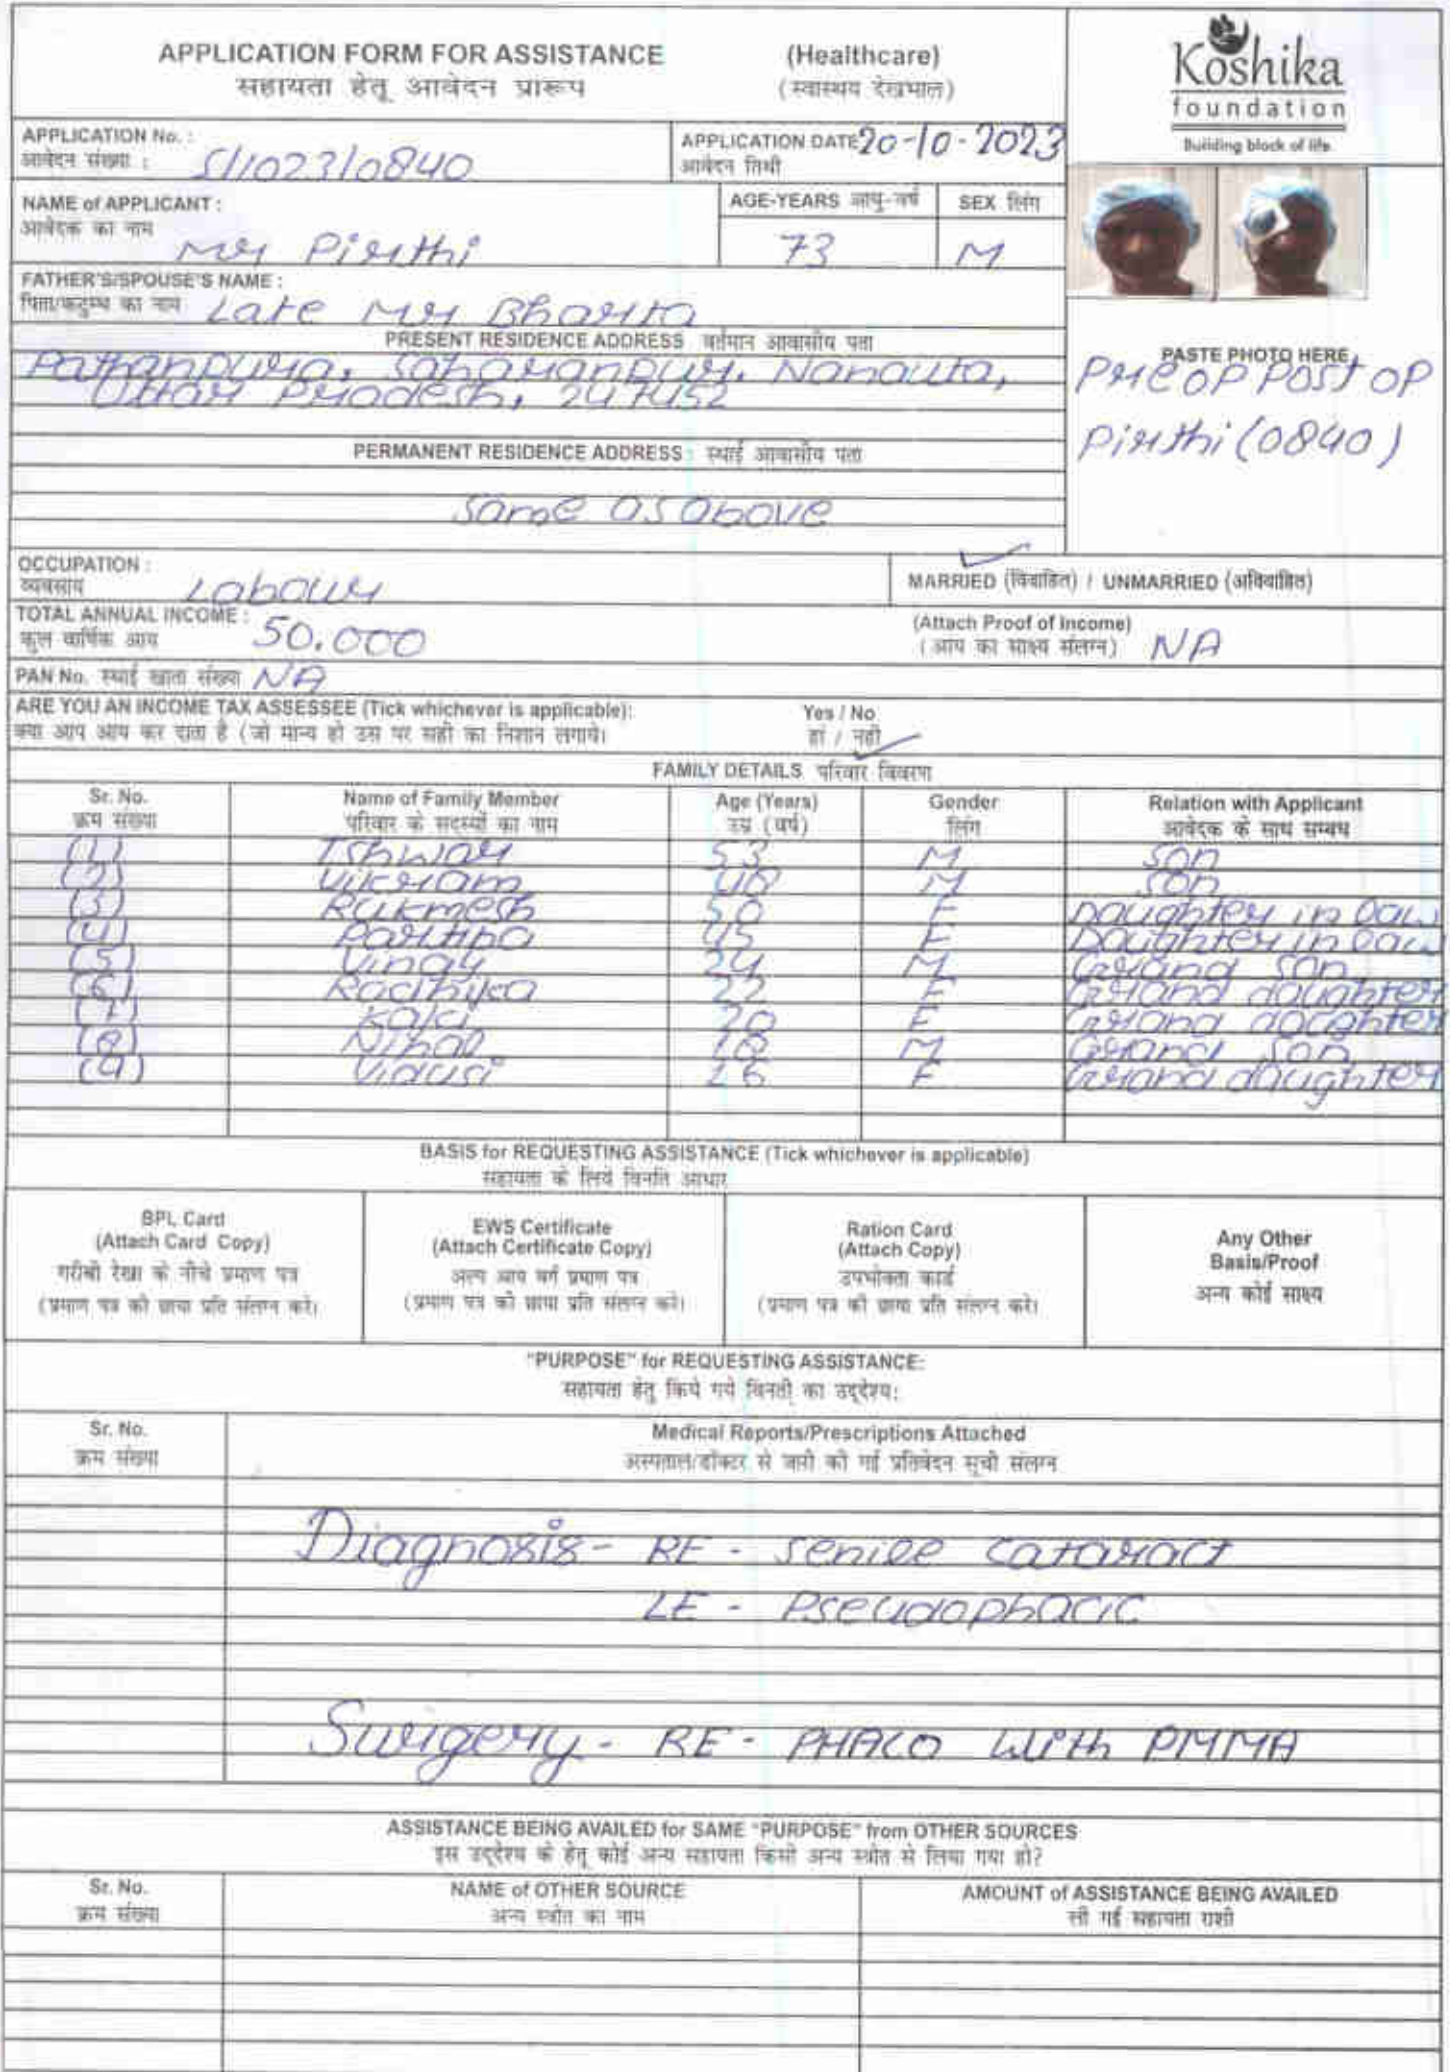 APPLICATION FORM FOR ASSISTANCE (Healthcare)
सहायता हेतू आवेदन प्रारूप (स्वास्थय देखभाल)
Koshika
foundation
Building block of life
APPLICATION No. :
आवेदन संख्या : S/1023/0840
APPLICATION DATE 20-10-2023
आवेदन तिथी
NAME of APPLICANT :
आवेदक का नाम Mr Pirthi
AGE-YEARS आयु-वर्ष 73
SEX लिंग M
FATHER'S/SPOUSE'S NAME :
पिता/कटुम्ब का नाम Late Mr Bharta
PRESENT RESIDENCE ADDRESS वर्तमान आवासीय पता
Pathanpura, Saharanpur, Nanauta,
Uttar Pradesh, 247452
PASTE PHOTO HERE
Preop Post op
Pirthi (0840)
PERMANENT RESIDENCE ADDRESS : स्थाई आवासीय पता
Same as above
OCCUPATION :
व्यवसाय Labour
MARRIED (विवाहित) / UNMARRIED (अविवाहित)
TOTAL ANNUAL INCOME :
कुल वार्षिक आय 50,000
(Attach Proof of Income)
(आय का साक्ष्य संलग्न) NA
PAN No. स्थाई खाता संख्या NA
ARE YOU AN INCOME TAX ASSESSEE (Tick whichever is applicable): Yes / No
क्या आप आय कर दाता है (जो मान्य हो उस पर सही का निशान लगाये। हां / नही
FAMILY DETAILS परिवार विवरण
Sr. No. Name of Family Member Age (Years) Gender Relation with Applicant
क्रम संख्या परिवार के सदस्यों का नाम उम्र (वर्ष) लिंग आवेदक के साथ सम्बध
(1) Ishwar 53 M Son
(2) Vikram 48 M Son
(3) Rukmesh 50 F Daughter in law
(4) 45 F Daughter in law
(5) Vinay 24 M Grand son
(6) Radhika 22 F Grand daughter
(7) 20 F Grand daughter
(8) Nihal 18 M Grand son
(9) Vidusi 16 F Grand daughter
BASIS for REQUESTING ASSISTANCE (Tick whichever is applicable)
सहायता के लिये विनति आधार
BPL Card
(Attach Card Copy)
गरीबी रेखा के नीचे प्रमाण पत्र
(प्रमाण पत्र की छाया प्रति संलग्न करे।
EWS Certificate
(Attach Certificate Copy)
अल्प आय वर्ग प्रमाण पत्र
(प्रमाण पत्र की छाया प्रति संलग्न करे।
Ration Card
(Attach Copy)
उपभोक्ता कार्ड
(प्रमाण पत्र की छाया प्रति संलग्न करे।
Any Other
Basis/Proof
अन्य कोई साक्ष्य
"PURPOSE" for REQUESTING ASSISTANCE:
सहायता हेतु किये गये विनती का उद्देश्य:
Sr. No. Medical Reports/Prescriptions Attached
क्रम संख्या अस्पताल/डॉक्टर से जारी की गई प्रतिवेदन सूची संलग्न
Diagnosis - RE - Senile cataract
LE - Pseudophacic
Surgery - RE - PHACO with PMMA
ASSISTANCE BEING AVAILED for SAME "PURPOSE" from OTHER SOURCES
इस उद्देश्य के हेतू कोई अन्य सहायता किसी अन्य स्त्रोत से लिया गया हो?
Sr. No. NAME of OTHER SOURCE AMOUNT of ASSISTANCE BEING AVAILED
क्रम संख्या अन्य स्त्रोत का नाम ली गई सहायता राशी